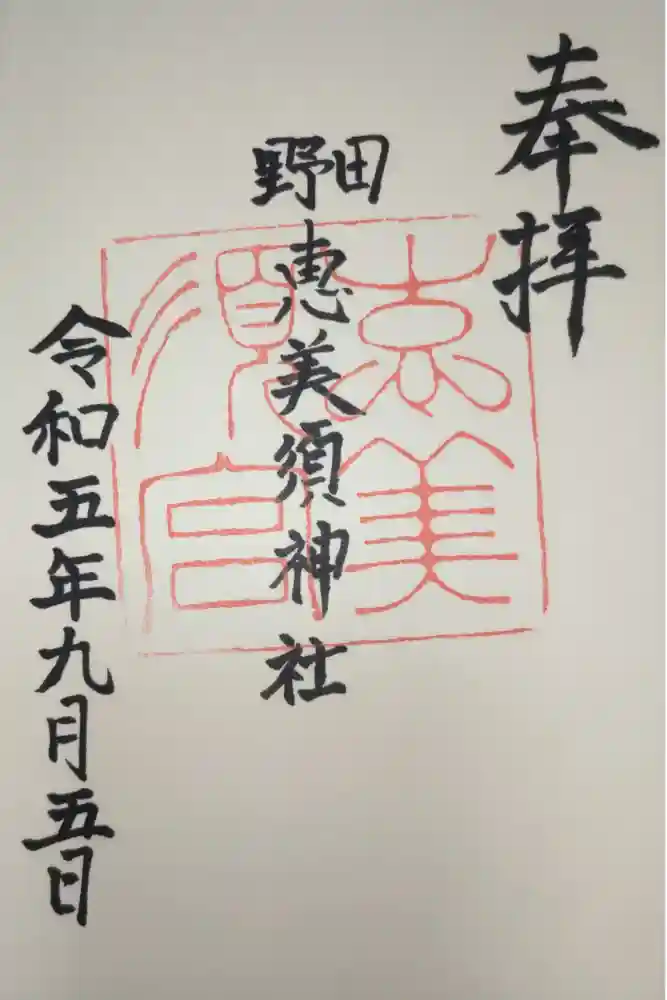 奉拝
野田
恵美須神社
恵美
須宮
令和五年九月五日